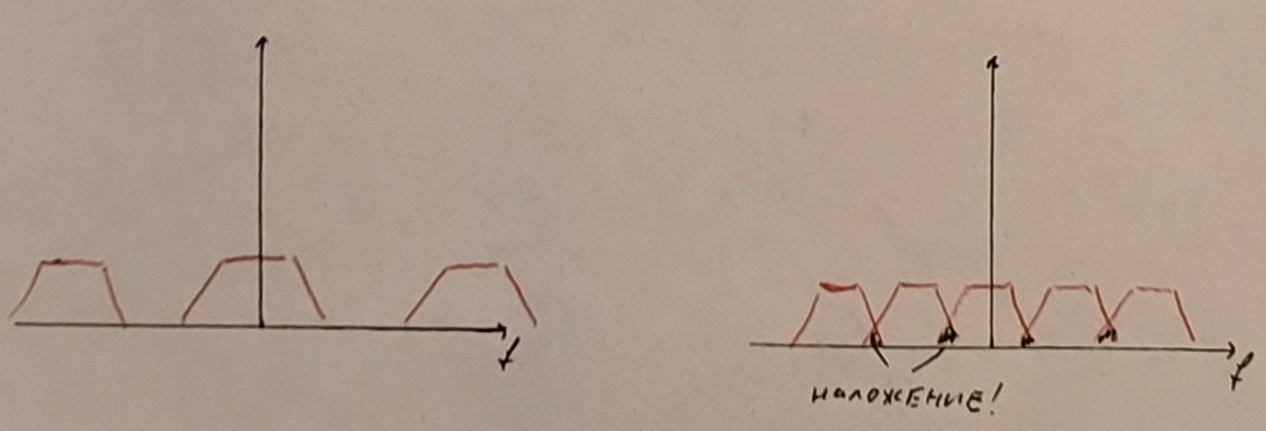 f
f
наложение!